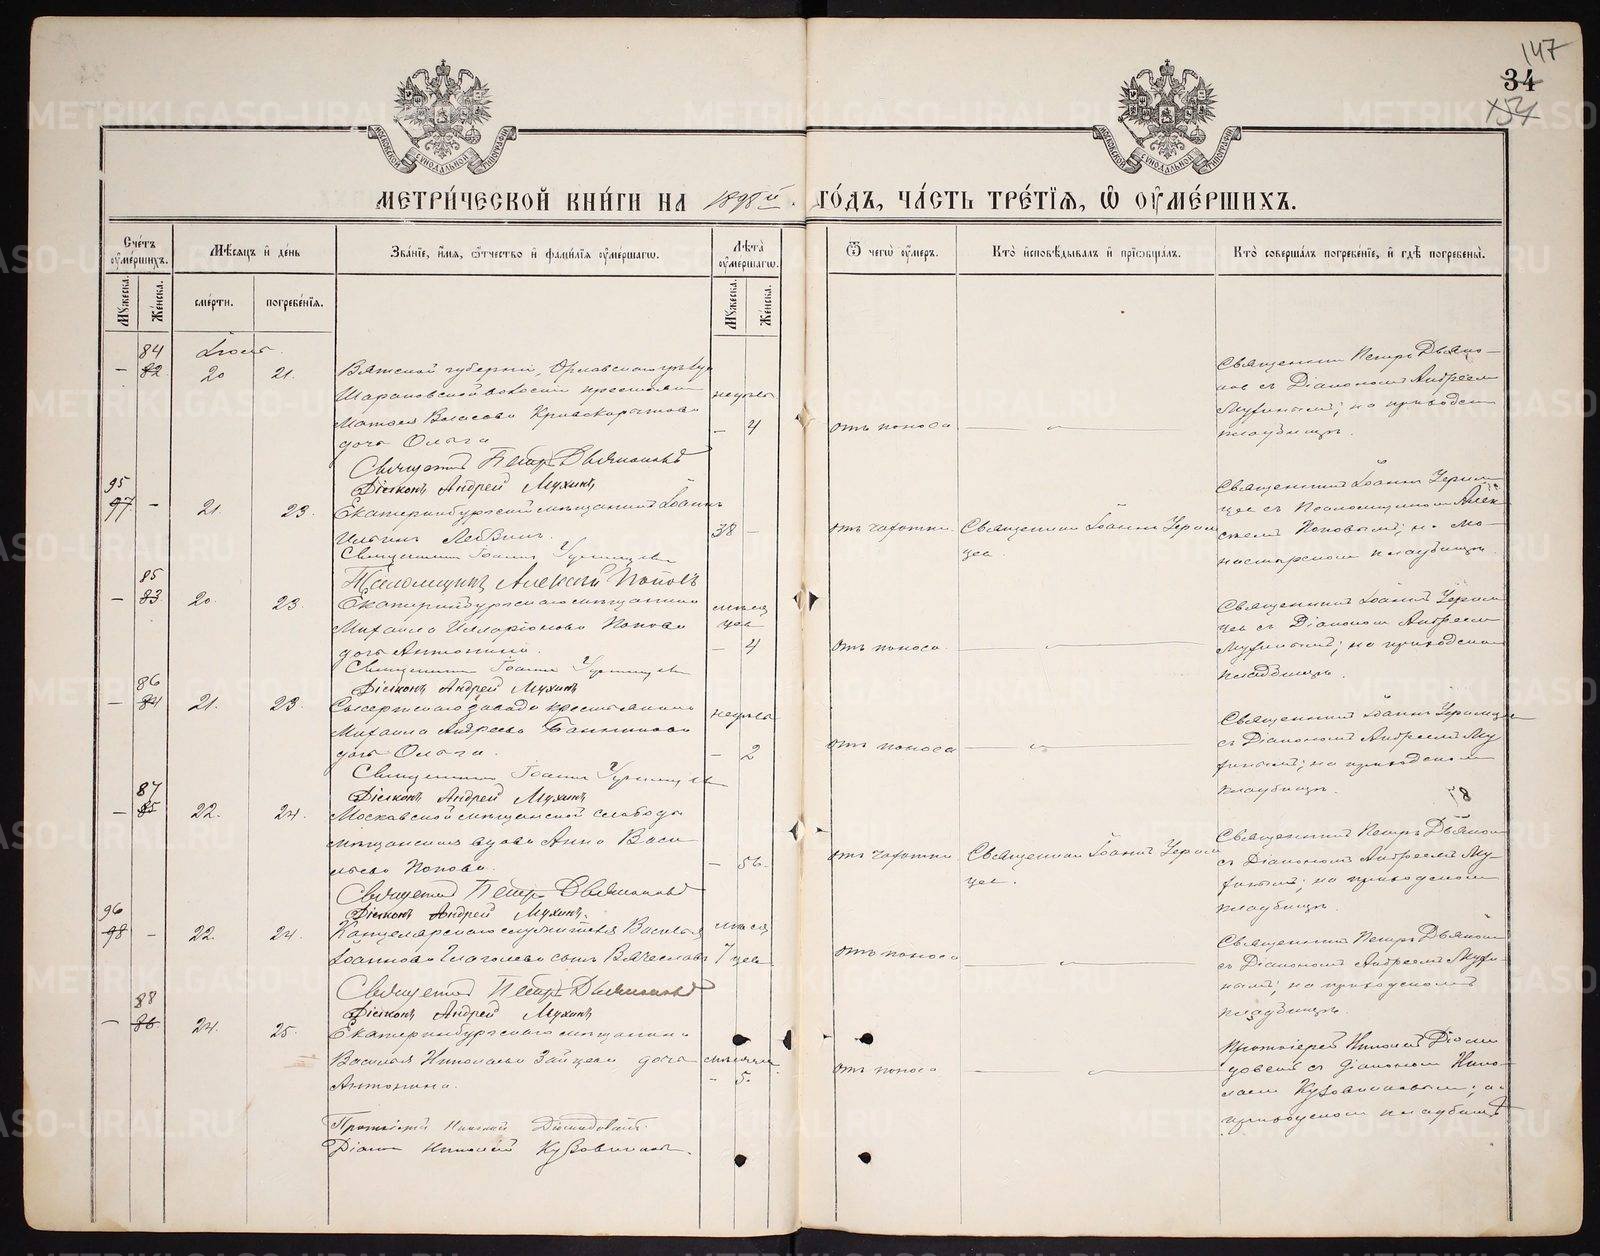 147
34
154
МОСКОВСКОЙ СѴНОДАЛЬНОЙ ТИПОГРАФІИ
МОСКОВСКОЙ СѴНОДАЛЬНОЙ ТИПОГРАФІИ
МЕТРИ́ЧЕСКОЙ КНИ́ГИ НА 1898й. ГО́ДЪ, ЧА́СТЬ ТРЕ́ТІЯ, Ѽ ОУ҆МЕ́РШИХЪ.
Сче́тъ оу҆ме́ршихъ.
Мꙋжеска.
Же́нска.
Мѣ́сяцъ и҆ де́нь
сме́рти.
погребе́нїя.
Зва́нїе, и҆́мя, ѻ҆́тчество и҆ фамі́лїя оу҆ме́ршагѡ.
Лѣта̀ оу҆ме́ршагѡ.
Мꙋжеска.
Же́нска.
Ѿ чегѡ̀ оу҆́меръ.
Кто̀ и҆сповѣ́дывалъ и҆ прїѡбща́лъ.
Кто̀ соверша́лъ погребе́нїе, и҆ гдѣ̀ погребены̀.
Іюль
84
— 82 20 21.
Вятской губерніи, Орловскаго уѣзда
Шарановской волости крестьянина
Матѳея Власова Кривокорытова
дочь Ольга
недѣль
— 4
отъ поноса
Священникъ Петръ Двяно-
новъ съ Діакономъ Андреемъ
Мухинымъ; на приходскомъ
кладбищѣ.
Священникъ Петръ Двяноновъ
Діаконъ Андрей Мухинъ
95
97 — 21. 23.
Екатеринбургскій мѣщанинъ Іоаннъ
Ильинъ
38 —
отъ чахотки.
Священникъ Іоаннъ
цевъ
Священникъ Іоаннъ
цевъ съ Псаломщикомъ Алек-
сѣемъ Поповымъ; на мо-
настырскомъ кладбищѣ.
Священникъ Іоаннъ
Псаломщикъ Алексѣй Поповъ
85
— 83 20. 23.
Екатеринбургскаго мѣщанина
Михаила Илларіонова Попова
дочь Антонина.
мѣся
цев
— 4
отъ поноса.
Священникъ Іоаннъ
цевъ съ Діакономъ Андреемъ
Мухинымъ; на приходскомъ
кладбищѣ.
Священникъ Іоаннъ
Діаконъ Андрей Мухинъ
86
— 84 21. 23.
Сысертскаго завода крестьянина
Михаила Андреева Банникова
дочь Ольга.
недѣль
— 2
отъ поноса
Священникъ Іоаннъ
съ Діакономъ Андреемъ Му
хинымъ; на приходскомъ
кладбищѣ.
Священникъ Іоаннъ
Діаконъ Андрей Мухинъ
78
87
— 85 22. 24.
Московской мѣщанской слободы
мѣщанская вдова Анна Васи
льева Попова.
— 56.
отъ чахотки.
Священникъ Іоаннъ
цевъ.
Священникъ Петръ Двянон
съ Діакономъ Андреемъ Му-
хинымъ; на приходскомъ
кладбищѣ.
Священникъ Петръ Двяноновъ
Діаконъ Андрей Мухинъ.
96
98 — 22. 24.
Канцелярскаго служителя Василья
Іоаннова Глаголева сынъ Вячеславъ
мѣсяц
7 цев
отъ поноса
Священникъ Петръ Двянон
съ Діакономъ Андреемъ Мухи-
нымъ; на приходскомъ
кладбищѣ.
Священникъ Петръ Двяноновъ
Діаконъ Андрей Мухинъ
88
— 86 24. 25.
Екатеринбургскаго мѣщанина
Василья Николаева Зайцева дочь
Антонина.
мѣсяцев
— 5.
отъ поноса
Протоіерей Николай Діоми
довскій съ діакономъ Нико-
лаемъ Кузовниковымъ; на
приходскомъ кладбищѣ
Протоіерей Николай Діомидовскій.
Діаконъ Николай Кузовниковъ.
METRIKI.GASO-URAL.RU